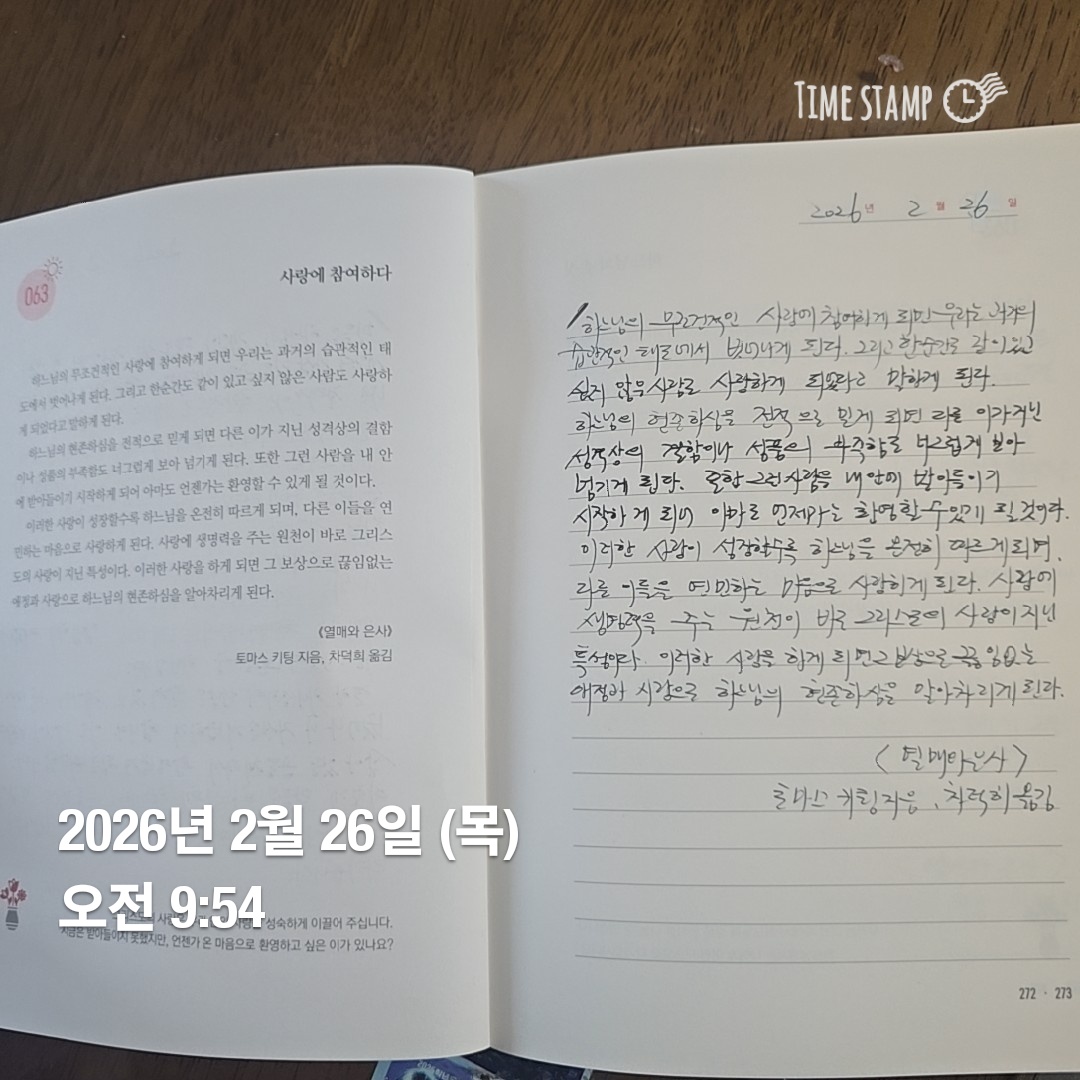 TIME STAMP
063
사랑에 참여하다
하느님의 무조건적인 사랑에 참여하게 되면 우리는 과거의 습관적인 태
도에서 벗어나게 된다. 그리고 한순간도 같이 있고 싶지 않은 사람도 사랑하
게 되었다고 말하게 된다.
하느님의 현존하심을 전적으로 믿게 되면 다른 이가 지닌 성격상의 결함
이나 성품의 부족함도 너그럽게 보아 넘기게 된다. 또한 그런 사람을 내 안
에 받아들이기 시작하게 되어 아마도 언젠가는 환영할 수 있게 될 것이다.
이러한 사랑이 성장할수록 하느님을 온전히 따르게 되며, 다른 이들을 연
민하는 마음으로 사랑하게 된다. 사랑에 생명력을 주는 원천이 바로 그리스
도의 사랑이 지닌 특성이다. 이러한 사랑을 하게 되면 그 보상으로 끊임없는
애정과 사랑으로 하느님의 현존하심을 알아차리게 된다.
《열매와 은사》
토마스 키팅 지음, 차덕희 옮김
성숙하게 이끌어 주십니다.
지금은 받아들이지 못했지만, 언젠가 온 마음으로 환영하고 싶은 이가 있나요?
2026년 2월 26일
하느님의 무조건적인 사랑에 참여하게 되면 우리는 과거의
습관적인 태도에서 벗어나게 된다. 그리고 한순간도 같이 있고
싶지 않은 사람도 사랑하게 되었다고 말하게 된다.
하느님의 현존하심을 전적으로 믿게 되면 다른 이가 지닌
성격상의 결함이나 성품의 부족함도 너그럽게 보아
넘기게 된다. 또한 그런 사람을 내 안에 받아들이기
시작하게 되어 아마도 언젠가는 환영할 수 있게 될 것이다.
이러한 사랑이 성장할수록 하느님을 온전히 따르게 되며,
다른 이들을 연민하는 마음으로 사랑하게 된다. 사랑에
생명력을 주는 원천이 바로 그리스도의 사랑이 지닌
특성이다. 이러한 사랑을 하게 되면 그 보상으로 끊임없는
애정과 사랑으로 하느님의 현존하심을 알아차리게 된다.
〈열매와 은사〉
토마스 키팅 지음, 차덕희 옮김
272 · 273
2026년 2월 26일 (목)
오전 9:54